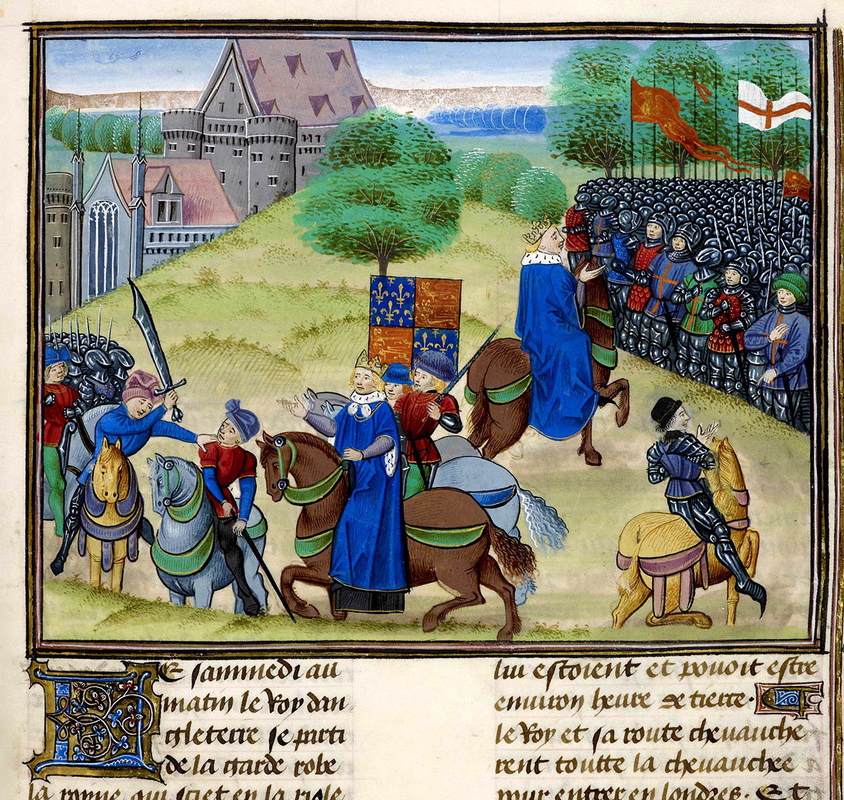 LE sammedi au
matin le Roy dan
gleterre se parti
de la garde robe
la royne qui siet en la riole
lui estoient et pouoit estre
enuiron heure de tierce.
le Roy et sa route cheuauche
rent toutte la cheuauchee
pour entrer en londres. Et